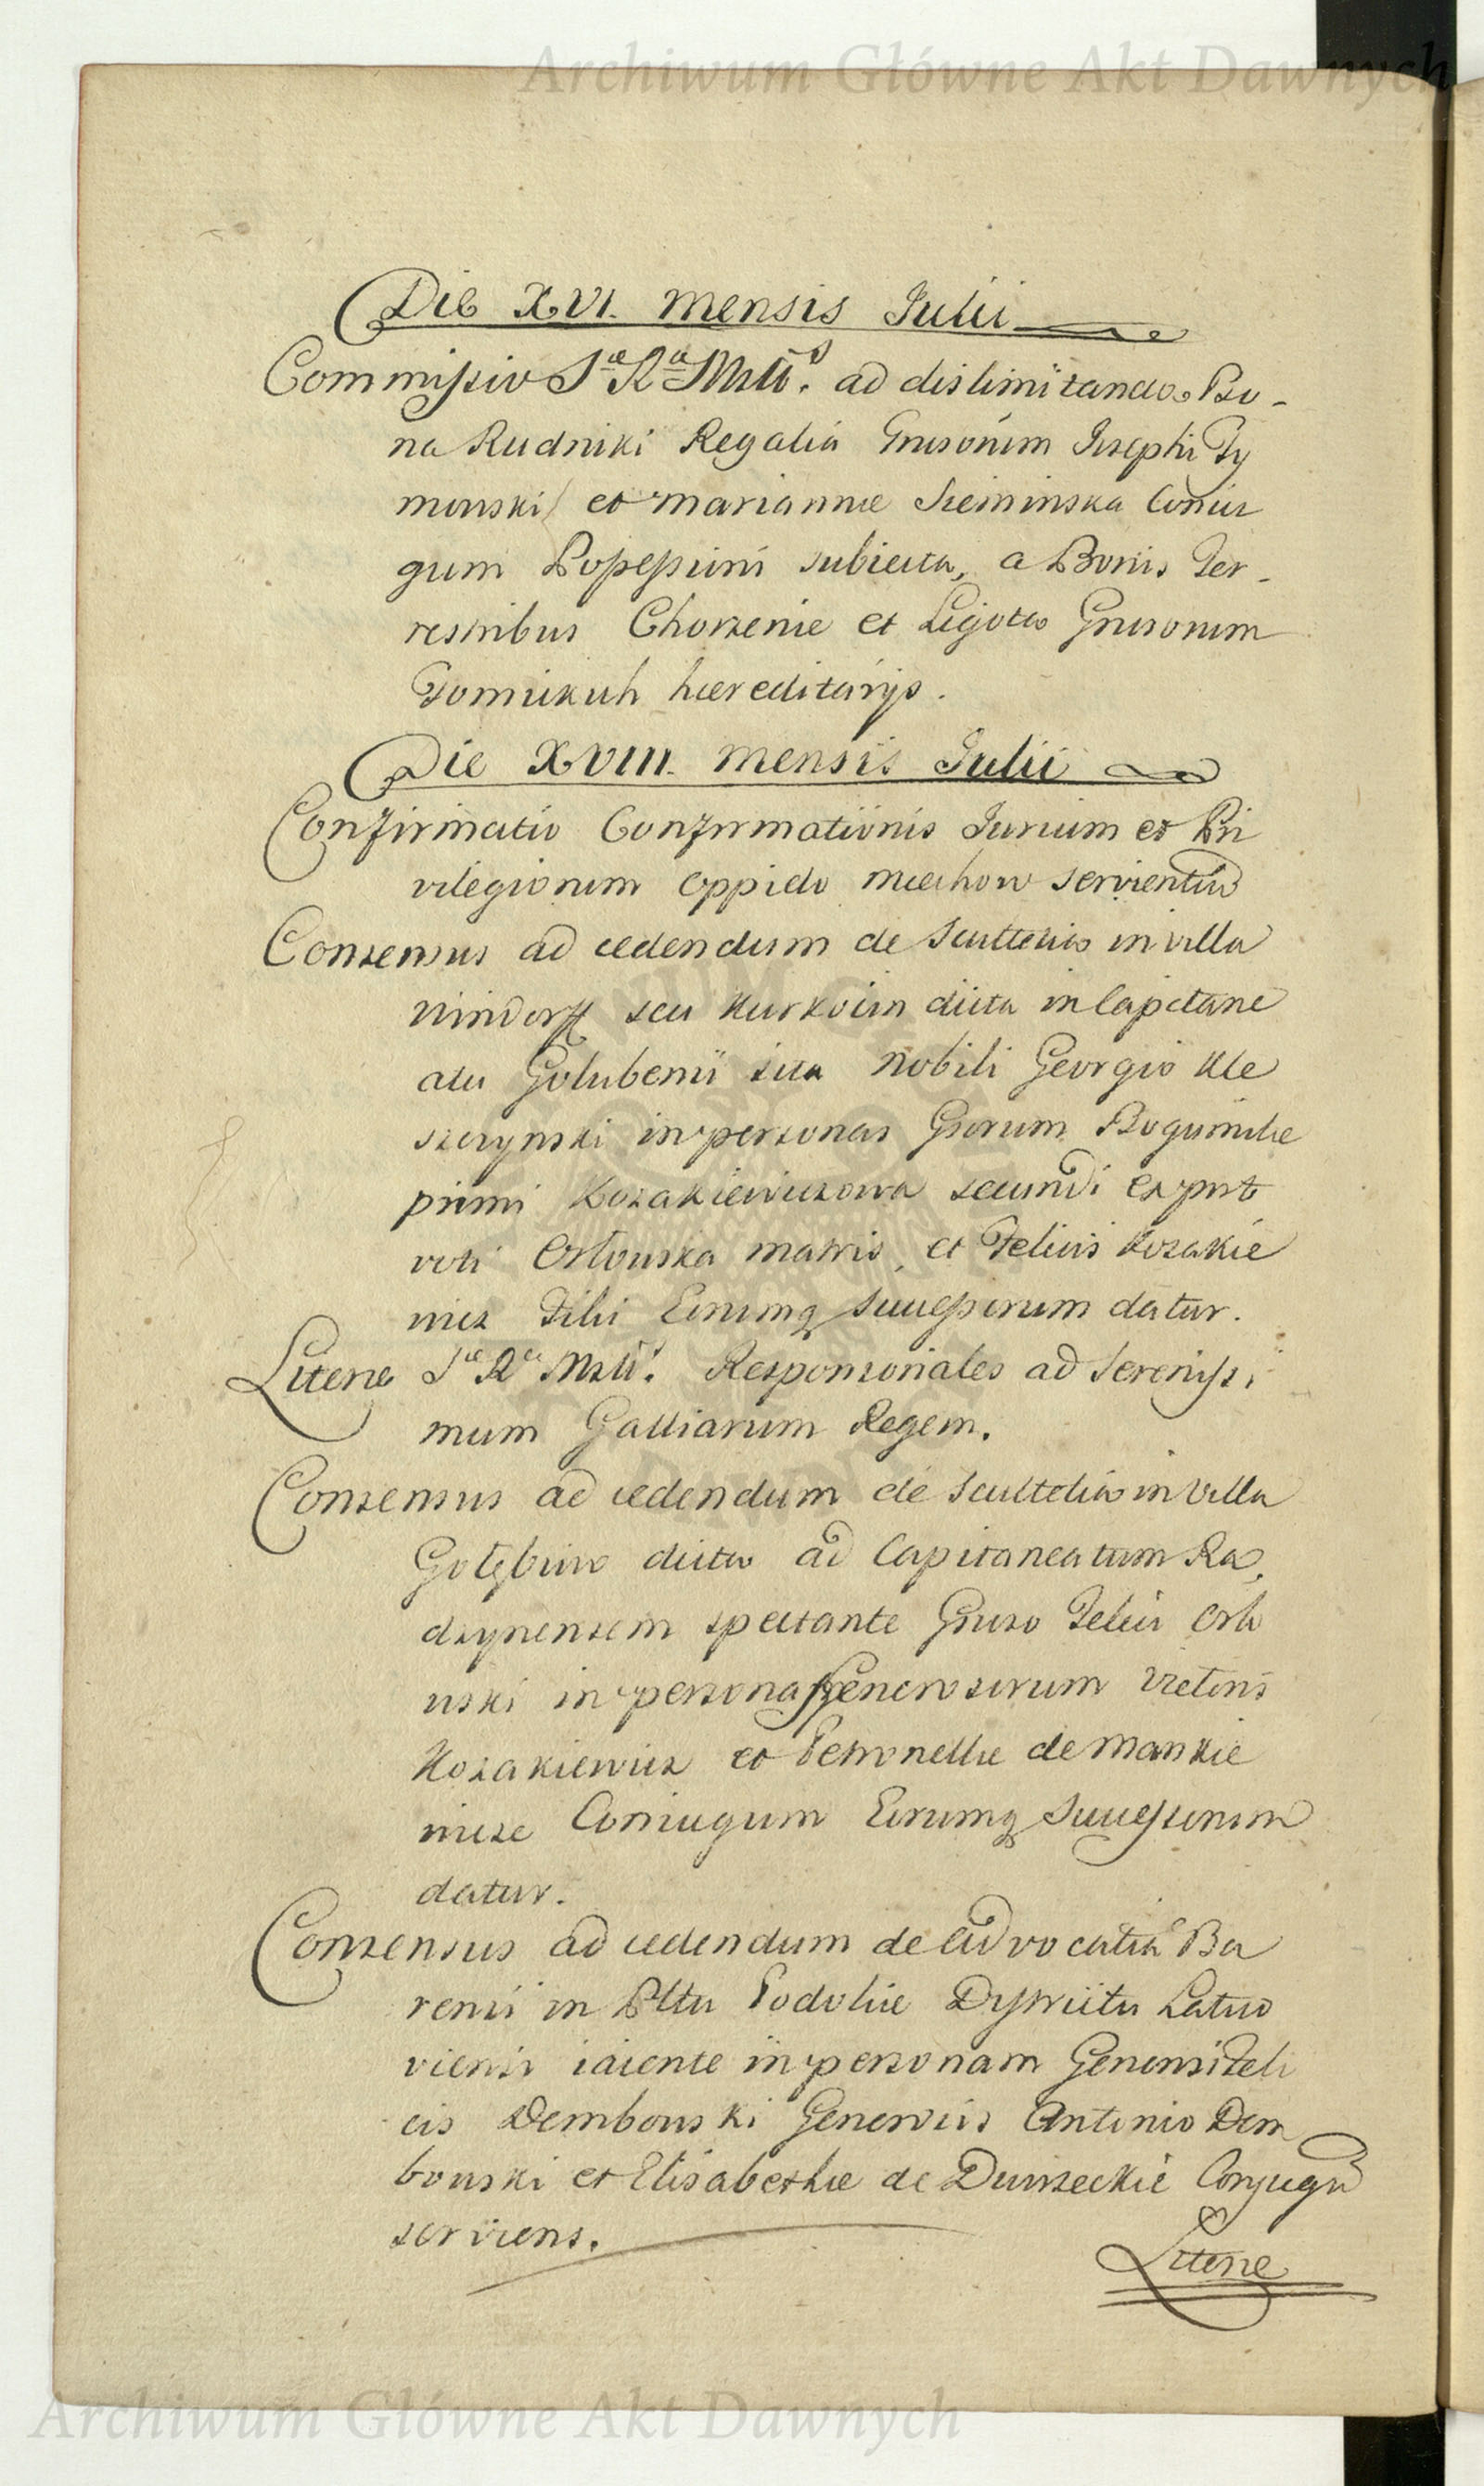 Archiwum Główne Akt Dawnych
Die XVI. Mensis Julii
Commissio Sae Rae Mttis. ad dislimitando Bo-
na Rudniki Regalia Gnrosorum Josephi Ty
mowski et Mariannæ Siemińska Coniu
gum Possessioni subiecta, a Bonis Ter-
restribus Chorzenie et Ligota Gnrosorum
hæreditarijs.
Die XVIII. Mensis Julii
Confirmatio Confirmationis Jurium et Pri
vilegiorum Oppido Miechow servientiu
Consensus ad cedendum de Scultetia in villa
seu dicta in Capitane
atu Golubensi sita Nobili Georgio Kle
szczynski in personas Gsorum Bogumiłæ
primi Kozakiewiczowa secundi expost
voti Orłowska matris, et Felicis Kozakie
wicz Filii Eorumq Successorum datur.
Literæ Sae Rae Mttis. Responsoriales ad Serenissi
mum Galliarum Regem.
Consensus ad cedendum de Scultetia in Villa
Gołębiow dicta ad Capitaneatum Ra
dzynensem spectante Gnroso Felici Orło
wski in personas Generosorum
Kozakiewicz et Petronellæ de Mankie
wicze Coniugum Eorumq Successorum
datur.
Consensus ad cedendum de Advocatia Ba
rensi in Pttu Podoliæ Dystrictu Latyc
viensi iacente in personam Generosi Feli
cis Dembowski Generosis Antonio Dem
bowski et Elisabethæ de Conjugu
serviens.
Literæ
Archiwum Główne Akt Dawnych